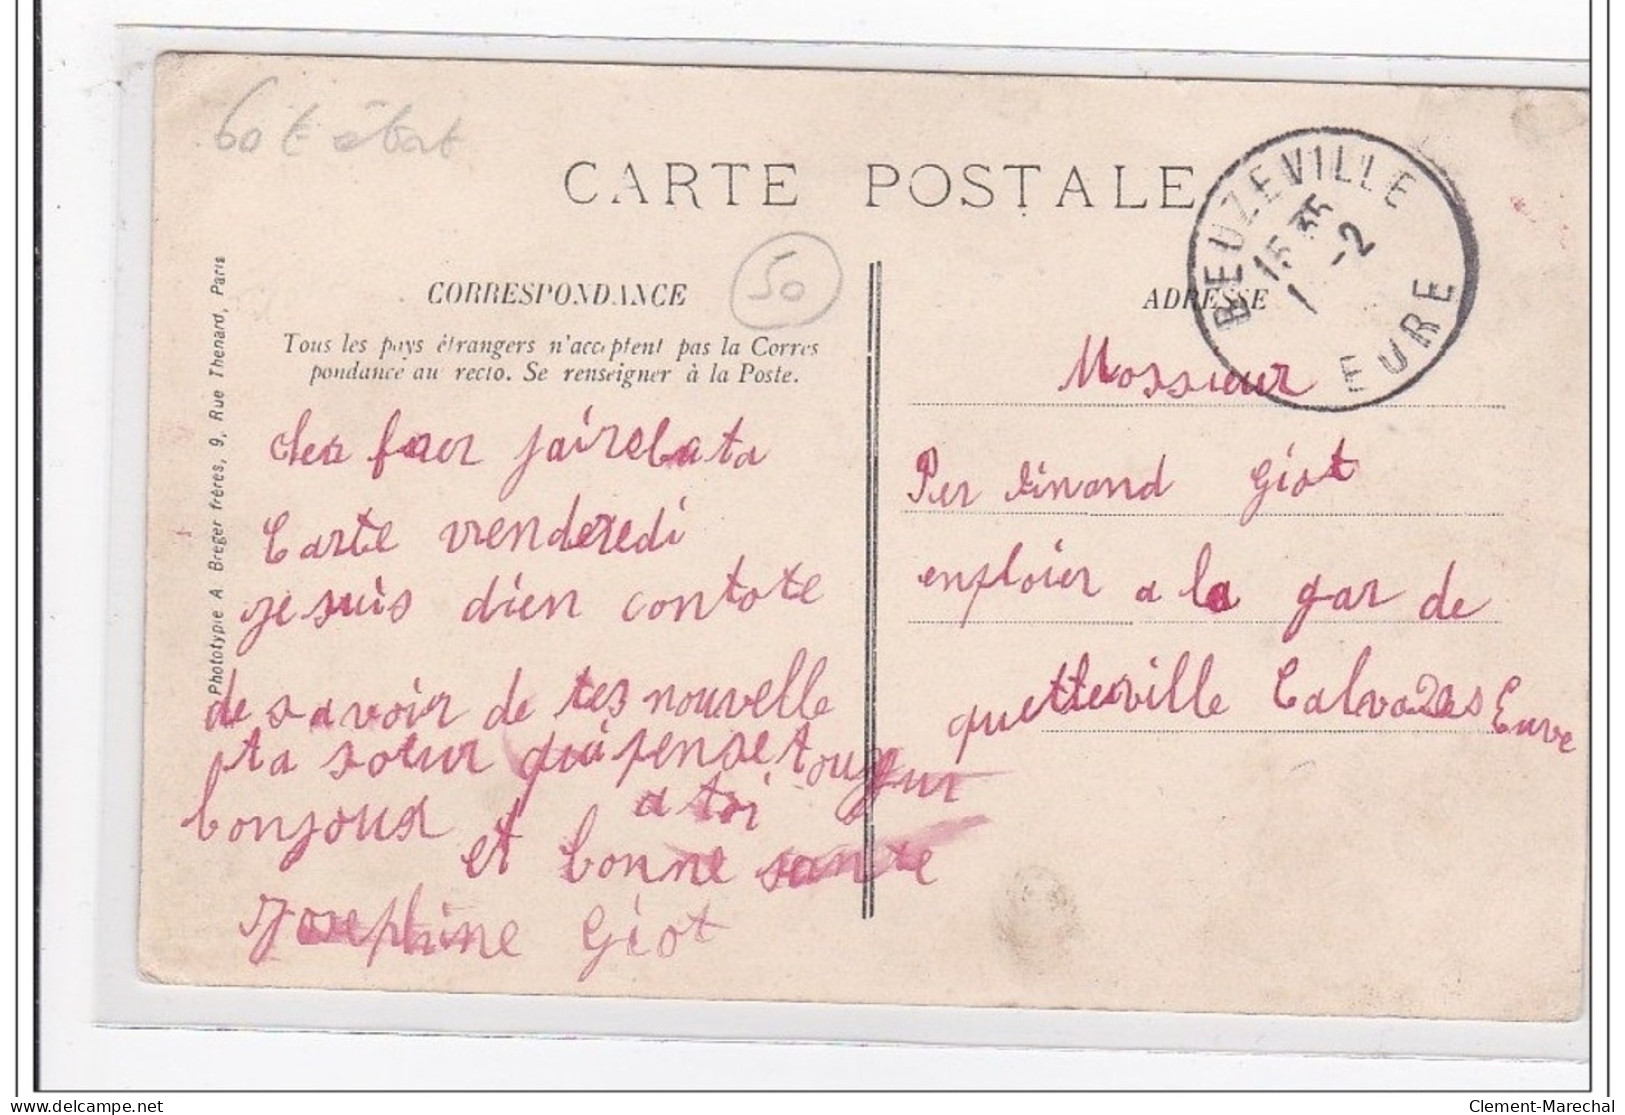 60 t
CARTE POSTALE
BEUZEVILLE
15 35
1 -2
EURE
50
CORRESPONDANCE
Tous les pays étrangers n'acceptent pas la Corres
pondance au recto. Se renseigner à la Poste.
Phototypie A Breger frères, 9, Rue Thenard, Paris
cher frer jairebuta
Carte vrenderedi
je suis dien contote
de savoir de tes nouvelle
ta soeur qui pense toujour
a toi
bonjour
et bonne sante
Josephine Giot
ADRESSE
Mossieur
Fer dinand Giot
enploier a la gar de
quetteville Calvados Eure
Clement-Marechal